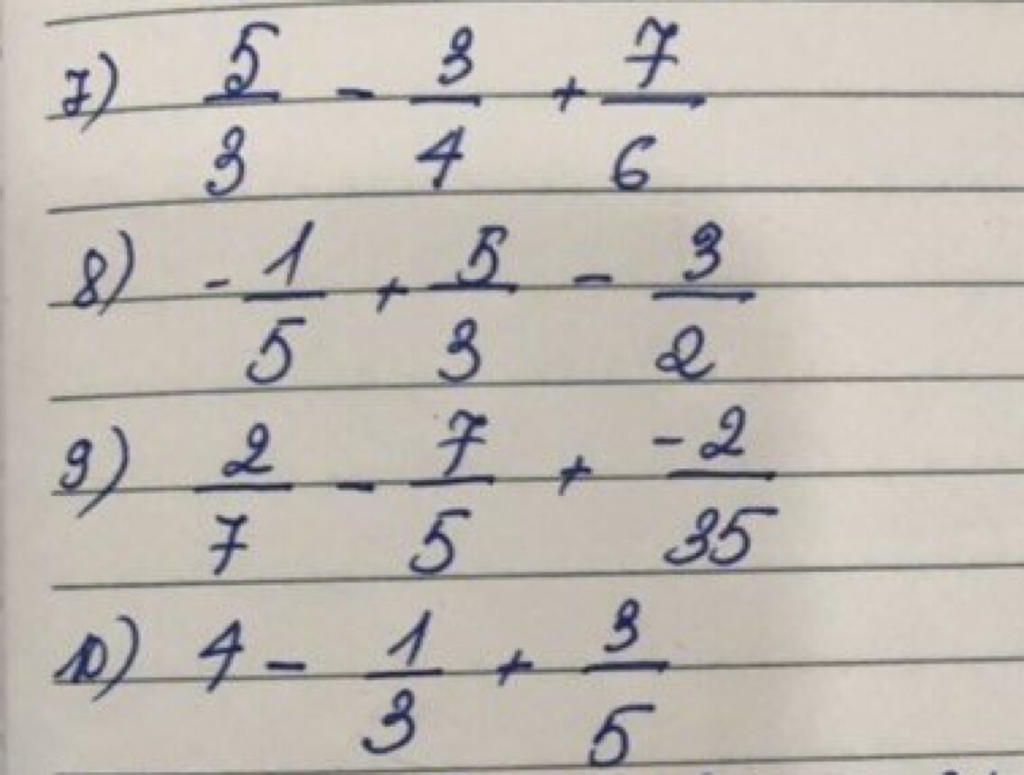 7) 5/3 - 3/4 + 7/6
8) -1/5 + 5/3 - 3/2
9) 2/7 - 7/5 + -2/35
10) 4 - 1/3 + 3/5